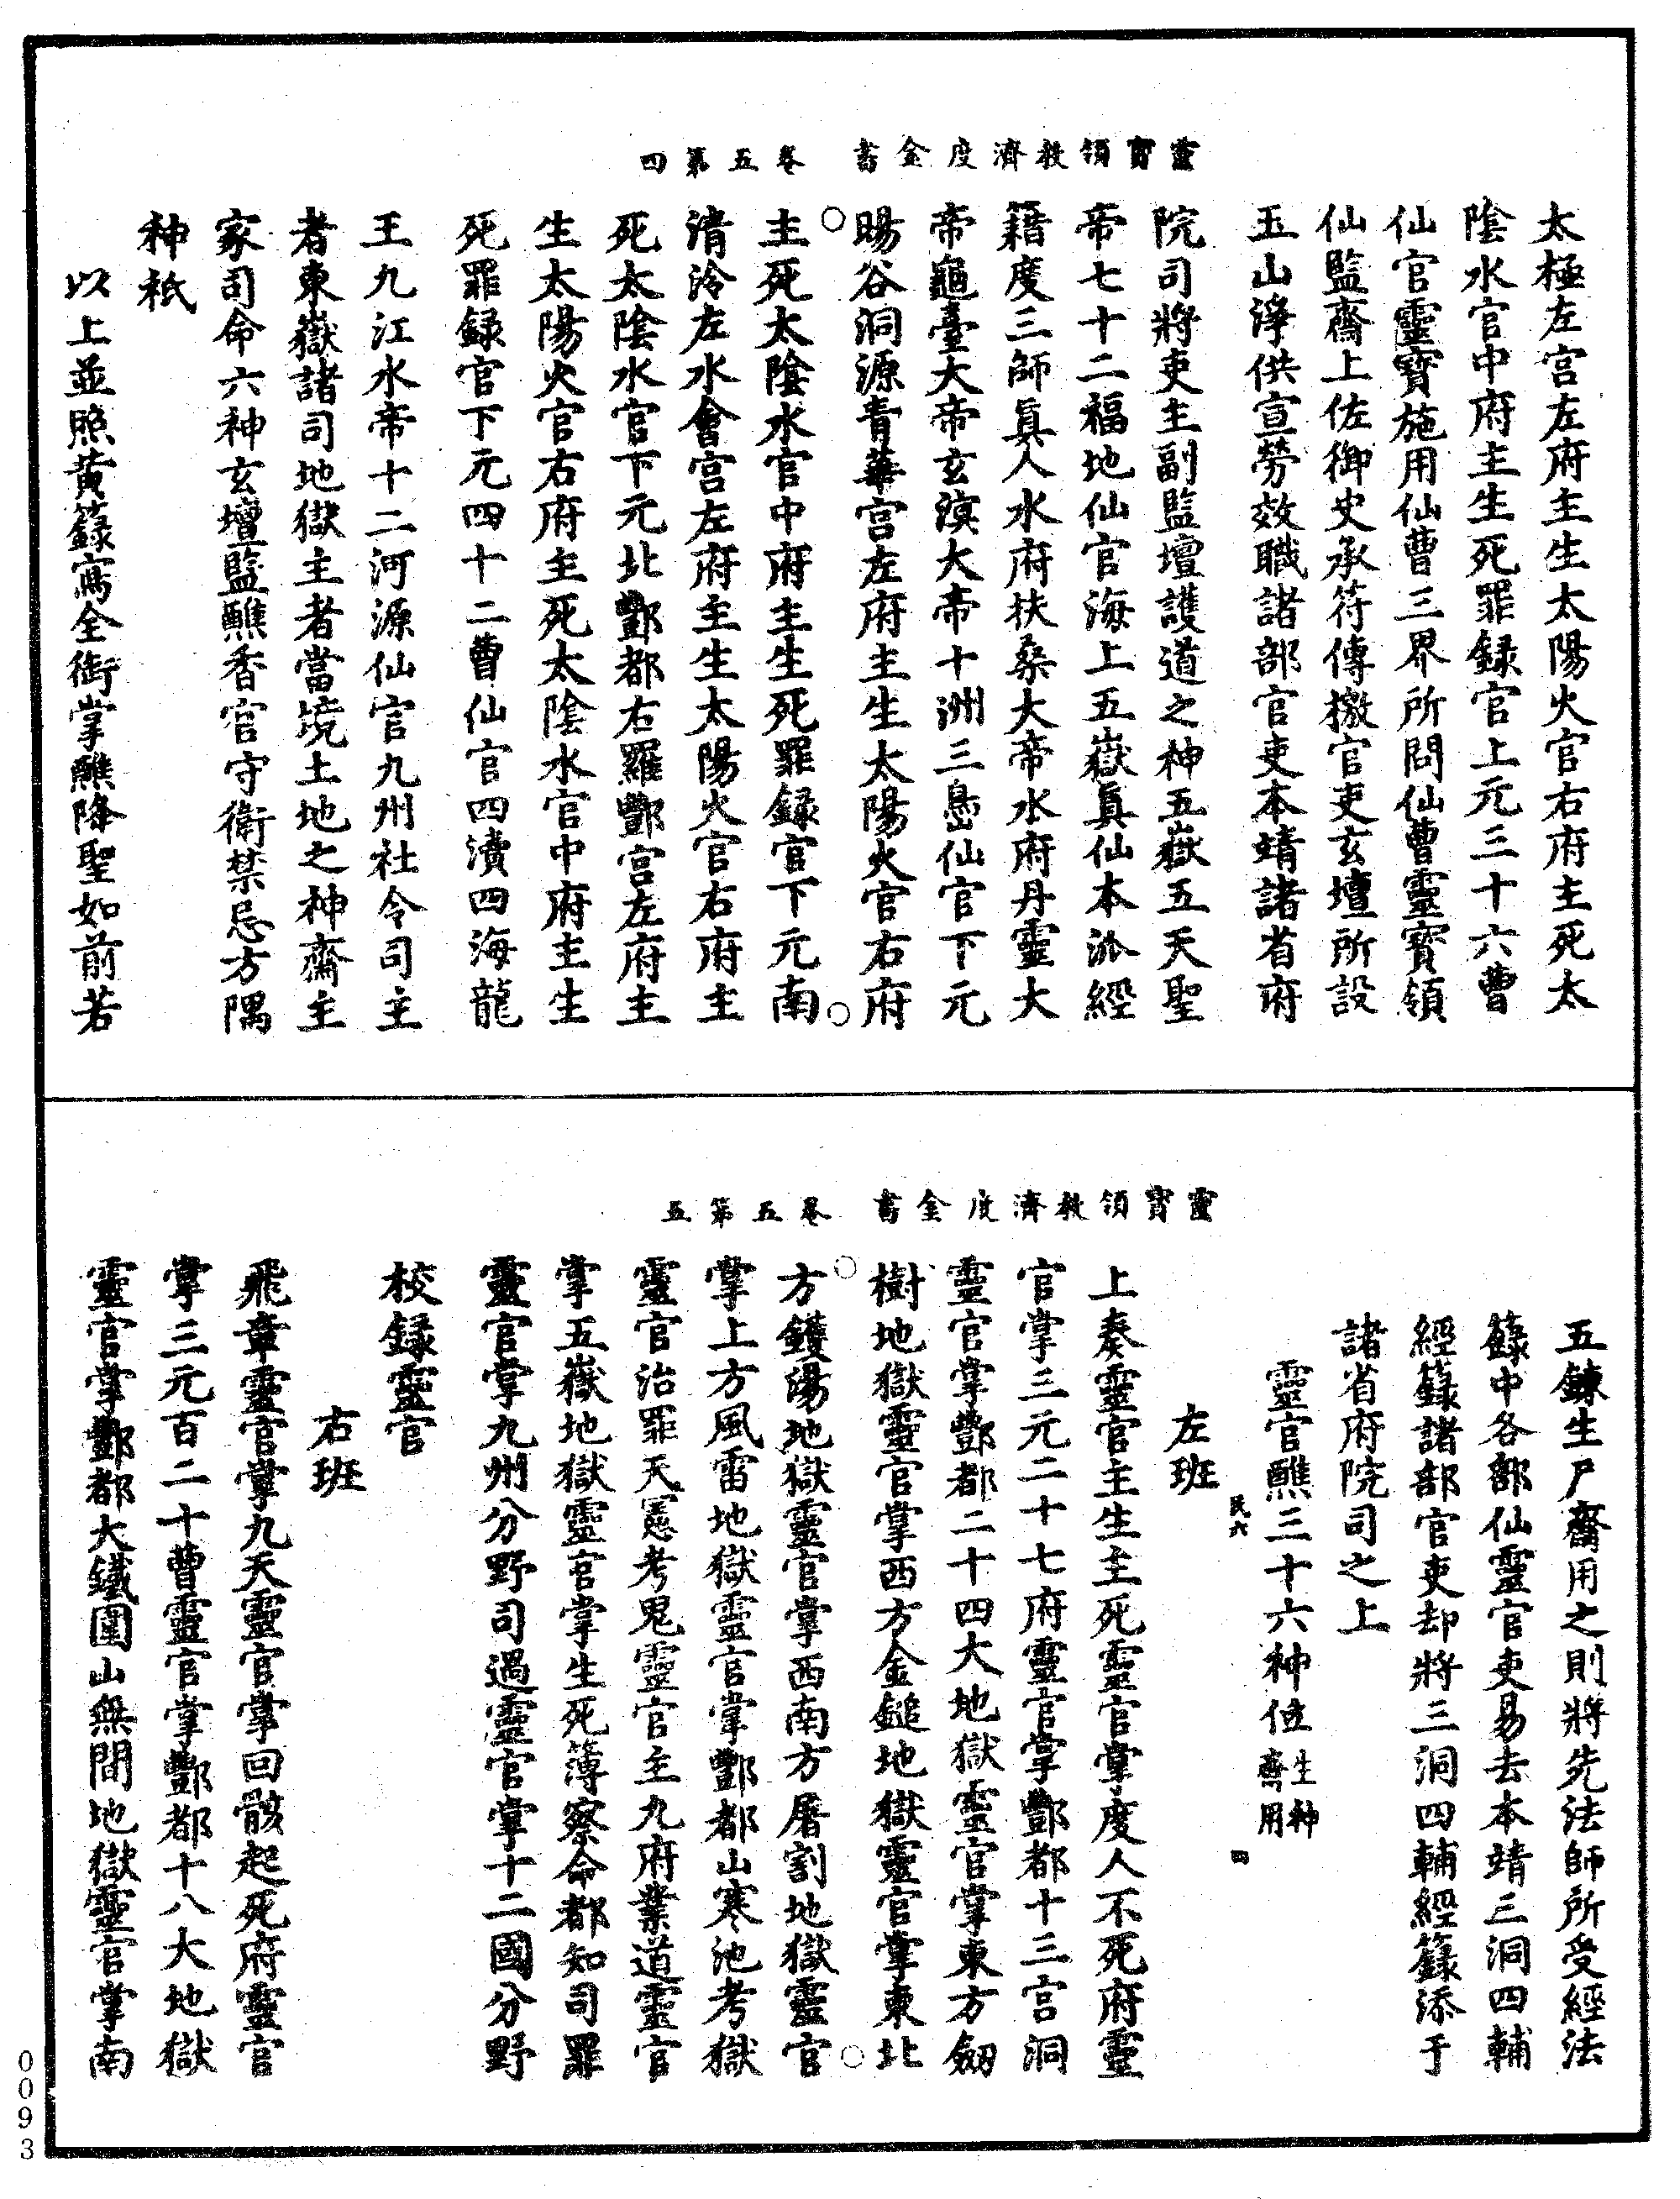 靈寶領教濟度金書 卷五第四
太極左宫左府主生太陽火官右府主死太
陰水官中府主生死罪録官上元三十六曹
仙官靈寶施用仙曹三界所問仙曹靈寶領
仙監齋上佐御史承符傳檄官吏玄壇所設
玉山淨供宣勞效職諸部官吏本靖諸省府
院司將吏主副監壇護道之神五嶽五天聖
帝七十二福地仙官海上五嶽真仙本派經
籍度三師真人水府扶桑大帝水府丹靈大
帝龜臺大帝玄溟大帝十洲三島仙官下元
暘谷洞源青華宫左府主生太陽火官右府
主死太陰水官中府主生死罪録官下元南
清泠左水會宫左府主生太陽火官右府主
死太陰水官下元北酆都右羅酆宫左府主
生太陽火官右府主死太陰水官中府主生
死罪録官下元四十二曹仙官四瀆四海龍
王九江水帝十二河源仙官九州社令司主
者東嶽諸司地獄主者當境土地之神齋主
家司命六神玄壇監醮香官守衛禁忌方隅
神祇
以上並照黄籙寫全銜掌醮降聖如前若
靈寶領教濟度金書 卷五第五
五鍊生尸齋用之則將先法師所受經法
籙中各部仙靈官吏易去本靖三洞四輔
經籙諸部官吏却將三洞四輔經籙添于
諸省府院司之上
靈官醮三十六神位生神齋用
民六 四
左班
上奏靈官主生主死靈官掌度人不死府靈
官掌三元二十七府靈官掌酆都十三宫洞
靈官掌酆都二十四大地獄靈官掌東方劒
樹地獄靈官掌西方金鎚地獄靈官掌東北
方鑊湯地獄靈官掌西南方屠割地獄靈官
掌上方風雷地獄靈官掌酆都山寒池考獄
靈官治罪天憲考鬼靈官主九府業道靈官
掌五嶽地獄靈官掌生死簿察命都知司罪
靈官掌九州分野司過靈官掌十二國分野
校録靈官
右班
飛章靈官掌九天靈官掌回骸起死府靈官
掌三元百二十曹靈官掌酆都十八大地獄
靈官掌酆都大鐵圍山無間地獄靈官掌南
0093